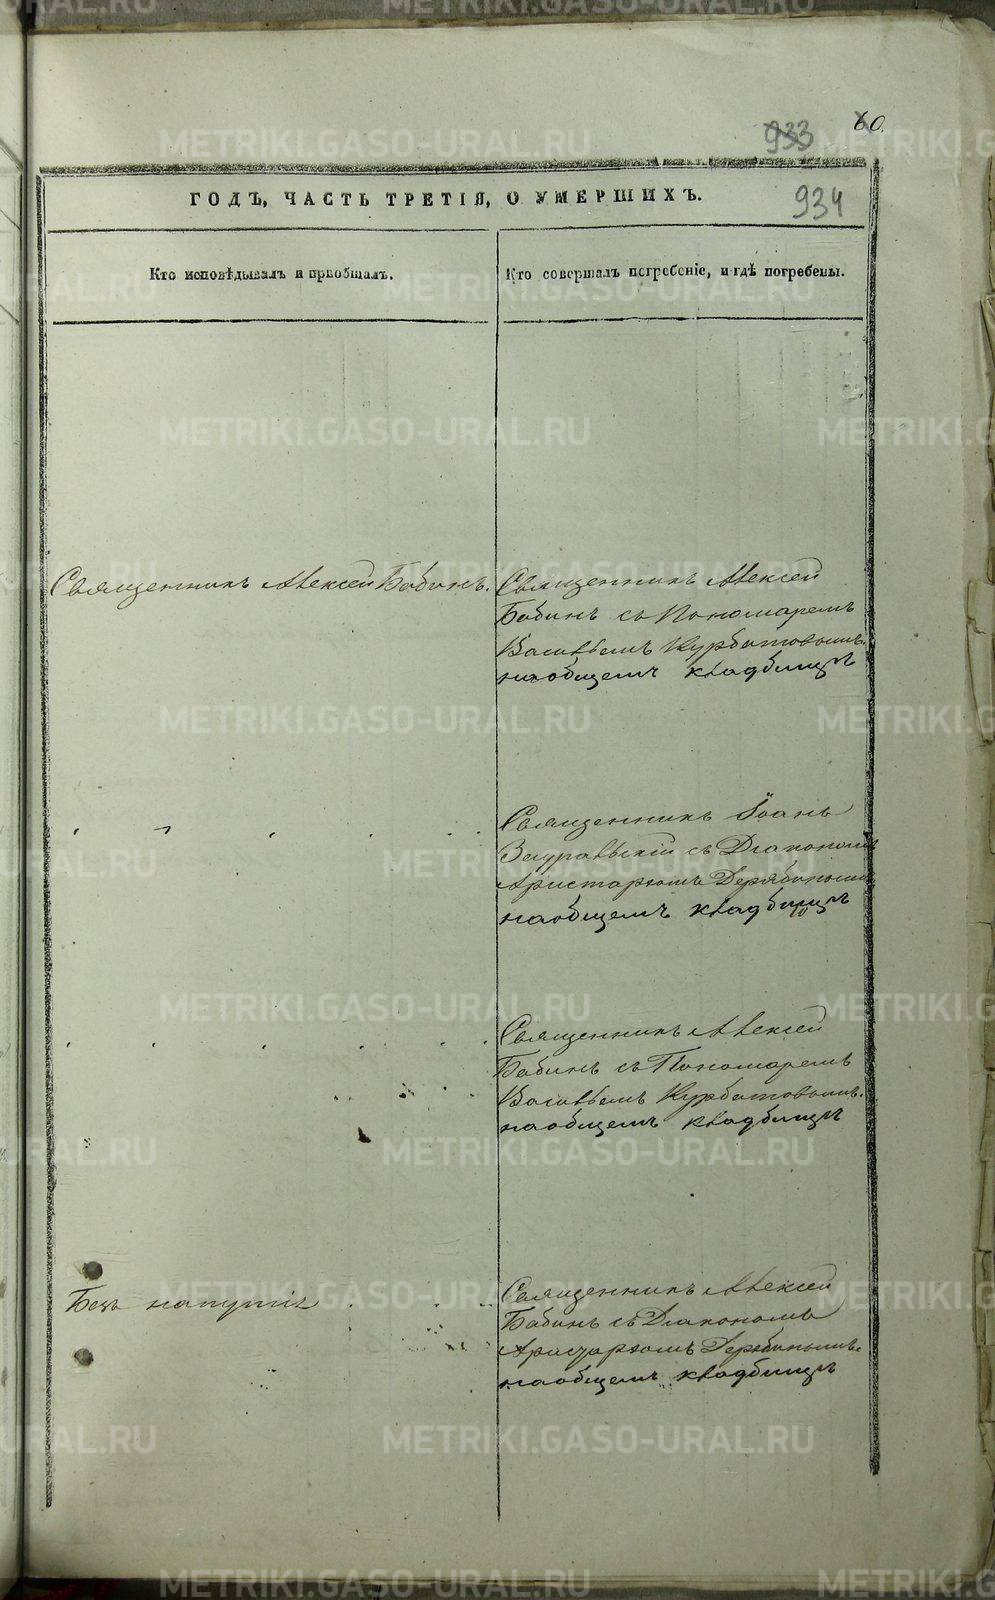 METRIKI.GASO-URAL.RU
60.
933
934
ГОДЪ, ЧАСТЬ ТРЕТІЯ, О УМЕРШИХЪ.
Кто исповѣдывалъ и пріобщалъ.
Кто совершалъ погребеніе, и гдѣ погребены.
Священникъ Алексей Бабинъ.
Священникъ Алексей
Бабинъ съ Пономаремъ
Васильемъ Курбатовымъ.
на общемъ кладбищѣ
Священникъ Іоанъ
съ Діакономъ
Аристархомъ Дерябинымъ
на общемъ кладбищѣ
Священникъ Алексей
Бабинъ съ Пономаремъ
Васильемъ Курбатовымъ.
на общемъ кладбищѣ
Безъ напутія
Священникъ Алексей
Бабинъ съ Діакономъ
Аристархомъ Дерябинымъ.
на общемъ кладбищѣ